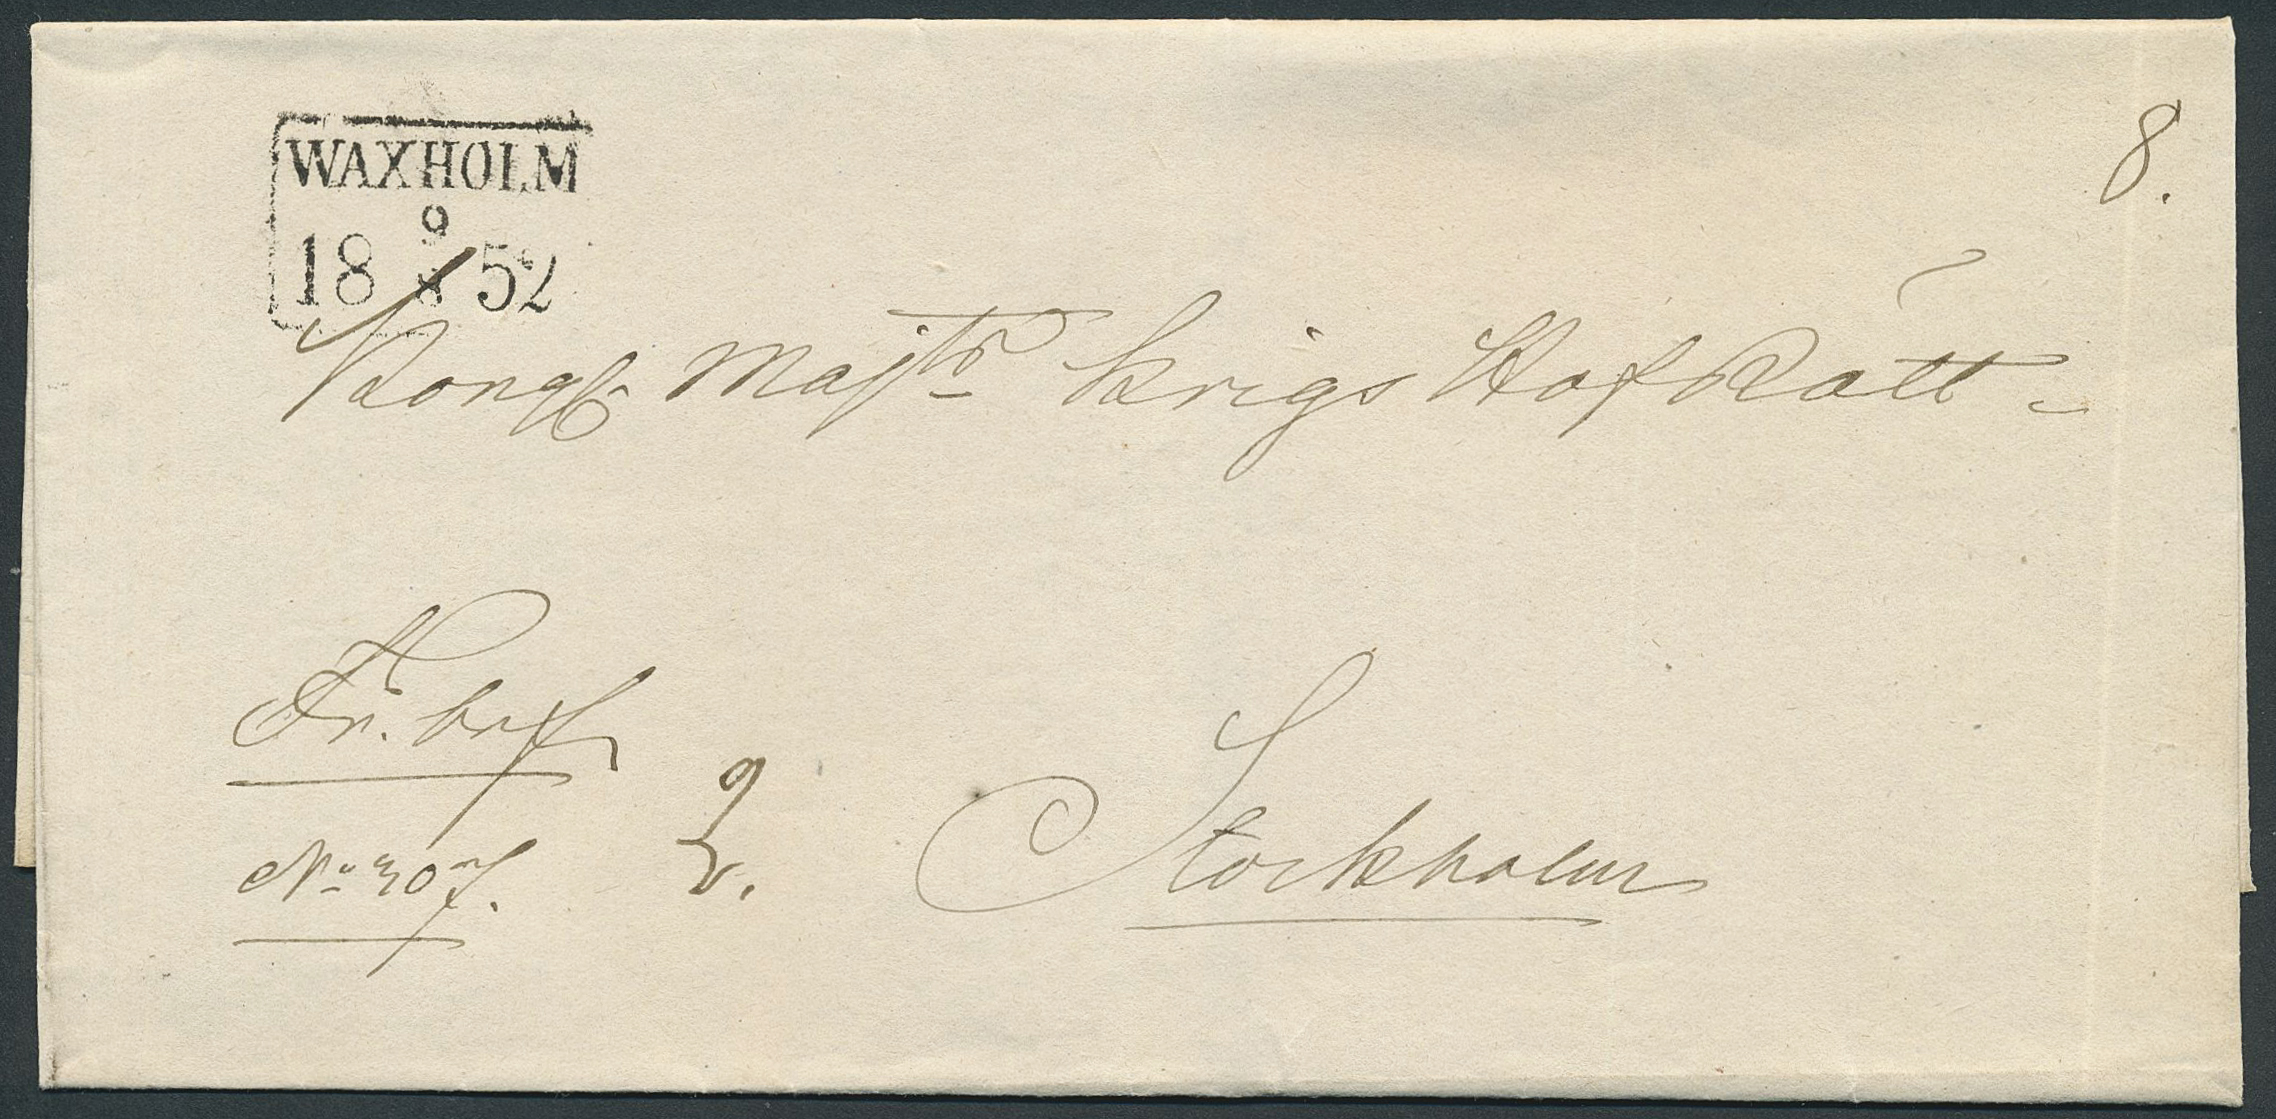 WAXHOLM
9
18 8 52
8.
Kongl. Majts Krigs Hof Rätt
Fr. bref
No 307.
2.
Stockholm